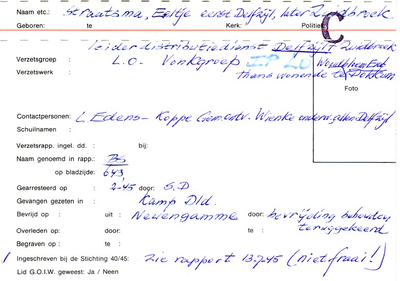 Naam etc.: Straatsma, Eeltje eerst Delfzijl, later Zuidbroek
Geboren: te Kerk: Politiek C
leider distributiedienst Delfzijl Zuidbroek
Verzetsgroep : L.O. Vonkgroep LO
Verzetswerk thans wonende te Dokkum
Foto
Contactpersonen: L. Edens - Koppe Gem. Wienke onderw. allen Delfzijl
Schuilnaam :
Verzetsrapp. ingel. dd. : bij:
Naam genoemd in rapp.:
op bladzijde: 643
Gearresteerd op : 2-45 door: S.D
Gevangen gezeten in : Kamp Dld.
Bevrijd op : uit : Neuengamme door: bevrijding behouden
Overleden op: door: teruggekeerd
Begraven op : te :
Ingeschreven bij de Stichting 40/45: zie rapport 13-7-45 (niet fraai!)
Lid G.O.I.W. geweest: Ja / Neen